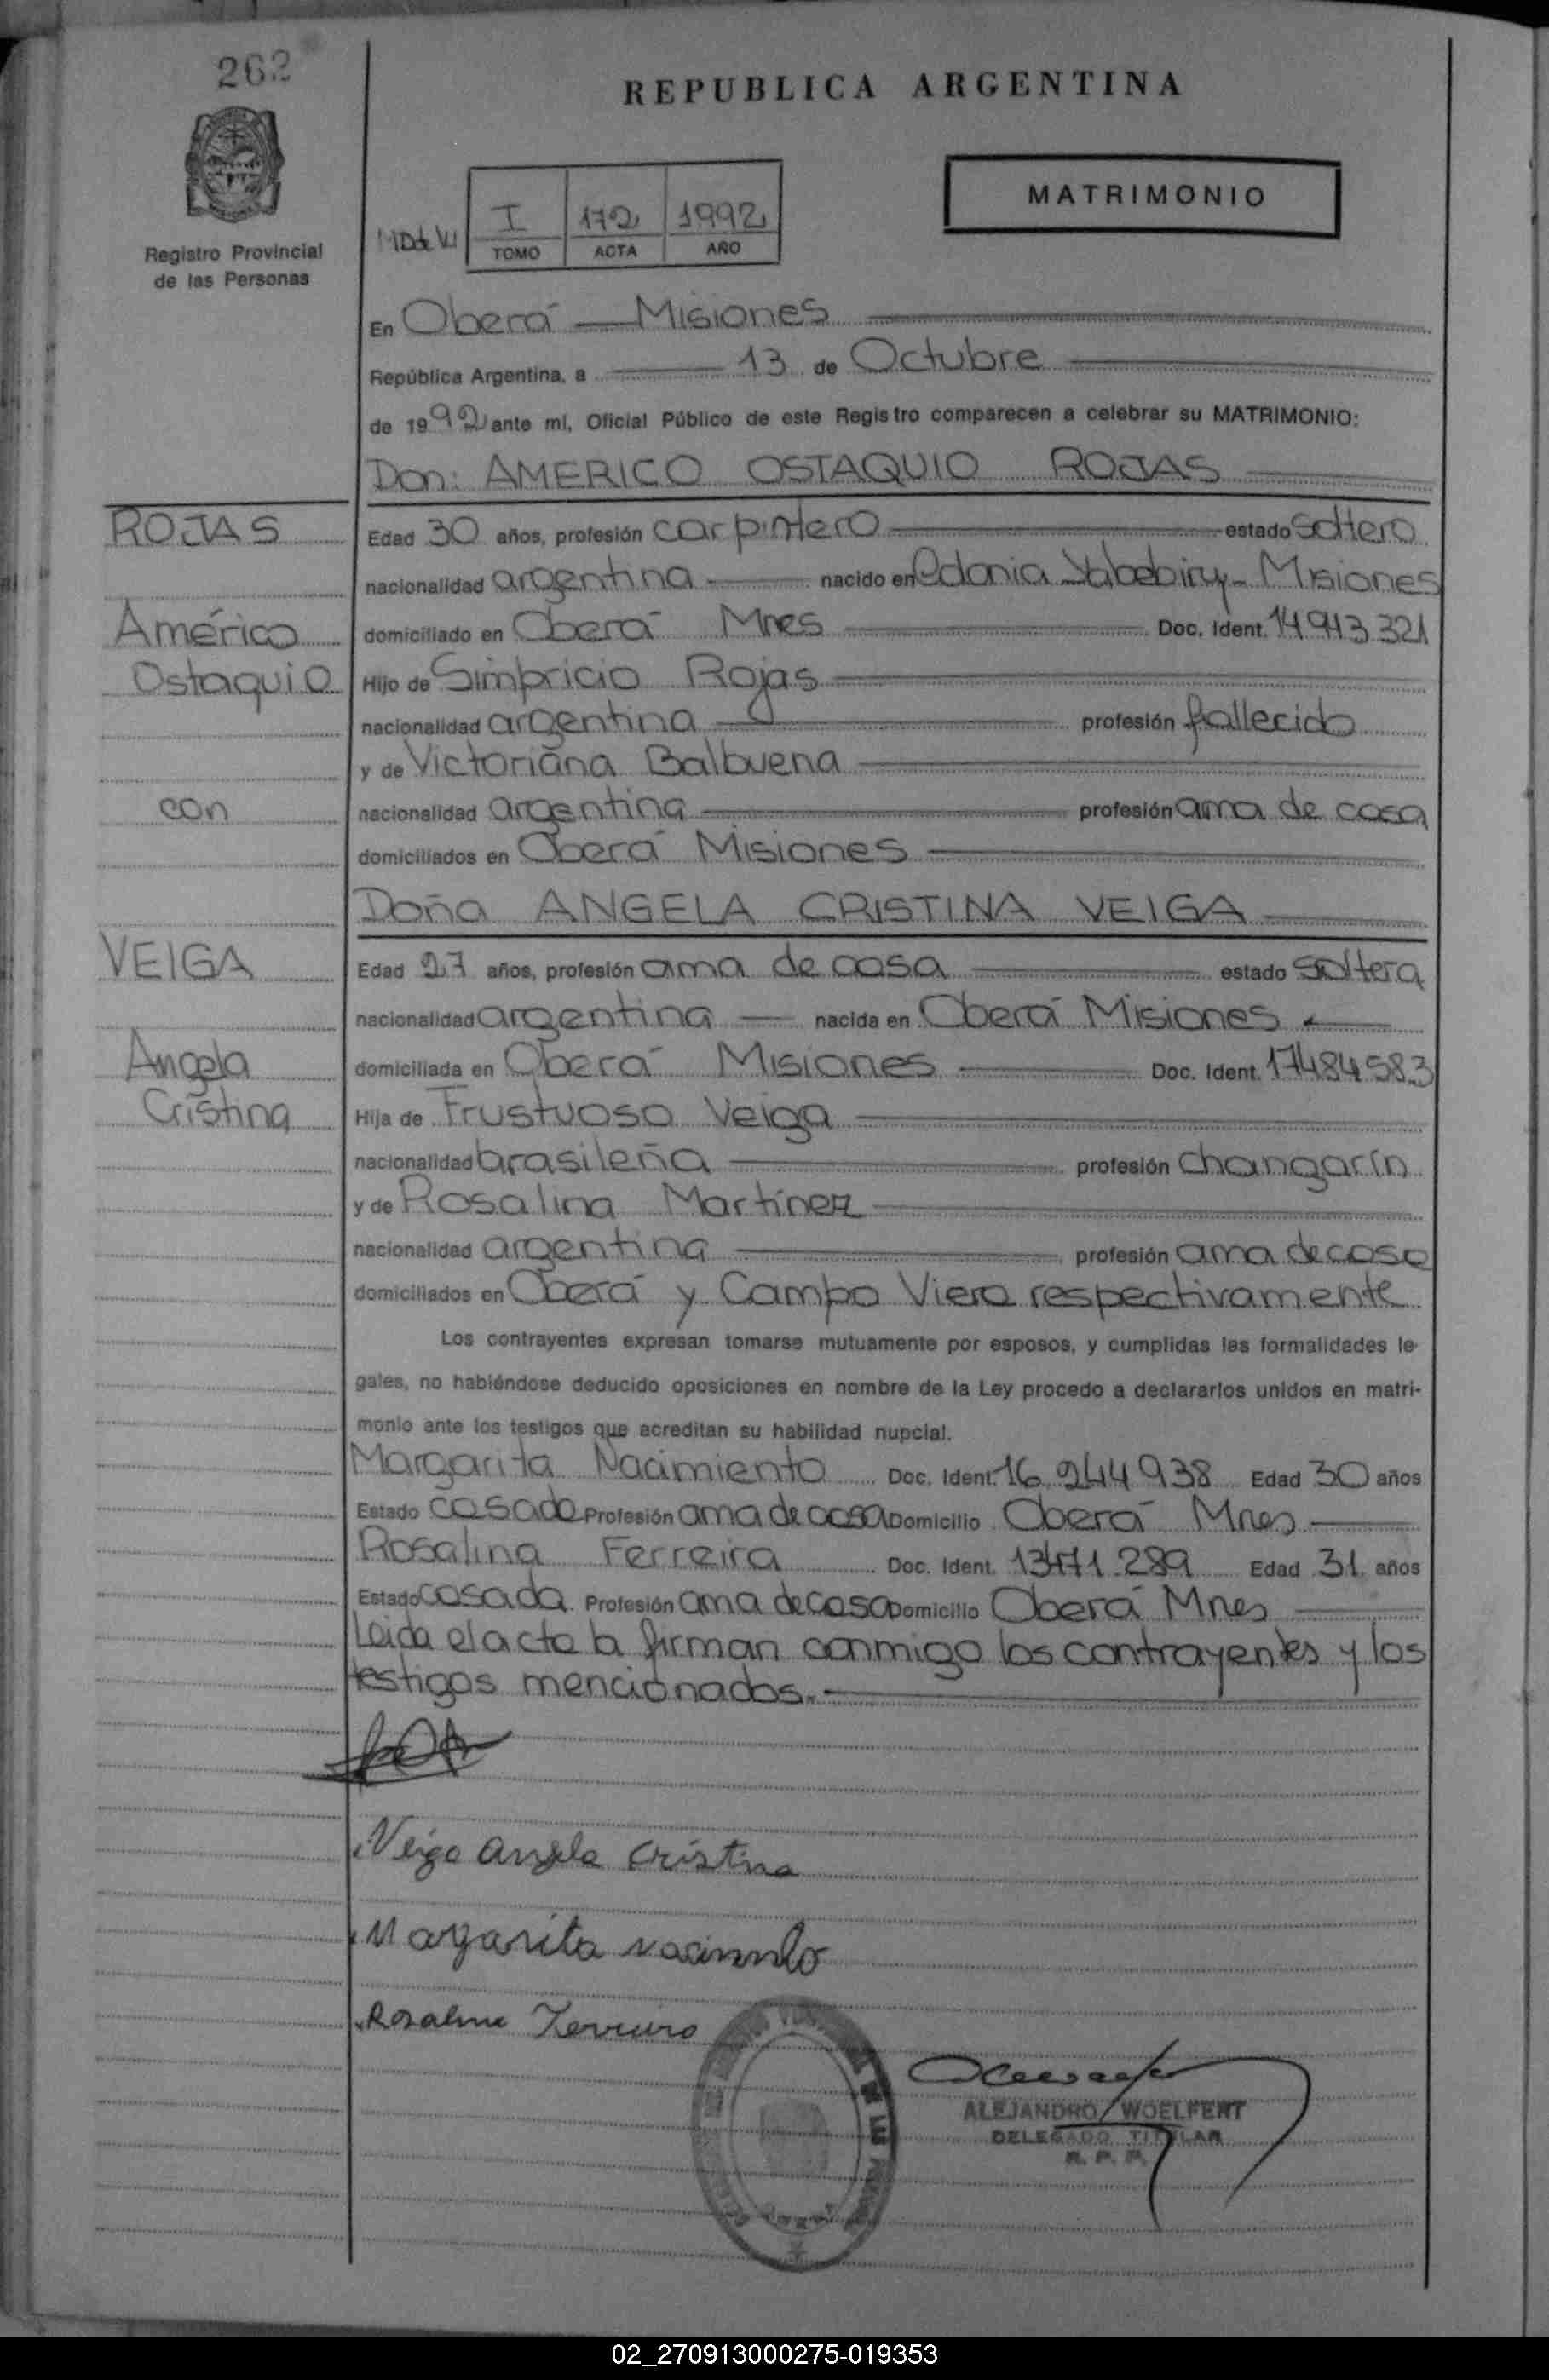 262
REPUBLICA ARGENTINA
MATRIMONIO
I 172 1992
TOMO ACTA AÑO
Registro Provincial
de las Personas
En Oberá Misiones
República Argentina, a 13 de Octubre
de 1992 ante mi, Oficial Público de este Registro comparecen a celebrar su MATRIMONIO:
Don: AMERICO OSTAQUIO ROJAS
ROJAS
Edad 30 años, profesión carpintero estado soltero
nacionalidad argentina nacido en Colonia Yabebiry - Misiones
Américo
domiciliado en Oberá Mnes Doc. Ident. 14 943 321
Ostaquio
Hijo de Simpricio Rojas
nacionalidad argentina profesión fallecido
y de Victoriana Balbuena
con
nacionalidad argentina profesión ama de casa
domiciliados en Oberá Misiones
Doña ANGELA CRISTINA VEIGA
VEIGA
Edad 27 años, profesión ama de casa estado soltera
nacionalidad argentina nacida en Oberá Misiones
Angela
domiciliada en Oberá Misiones Doc. Ident. 17484583
Cristina
Hija de Frustuoso Veiga
nacionalidad brasileña profesión changarín
y de Rosalina Martínez
nacionalidad argentina profesión ama de casa
domiciliados en Oberá y Campo Viera respectivamente
Los contrayentes expresan tomarse mutuamente por esposos, y cumplidas las formalidades le-
gales, no habiéndose deducido oposiciones en nombre de la Ley procedo a declararlos unidos en matri-
monio ante los testigos que acreditan su habilidad nupcial.
Margarita Nacimiento Doc. Ident. 16 244 938 Edad 30 años
Estado casada Profesión ama de casa Domicilio Oberá Mnes
Rosalina Ferreira Doc. Ident. 13471 289 Edad 31 años
Estado casada Profesión ama de casa Domicilio Oberá Mnes
Leida el acta la firman conmigo los contrayentes y los
testigos mencionados.
Veiga Angela Cristina
Margarita
Rosalina
ALEJANDRO WOELFERT
DELEGADO TITULAR
R. P. P.
02_270913000275-019353